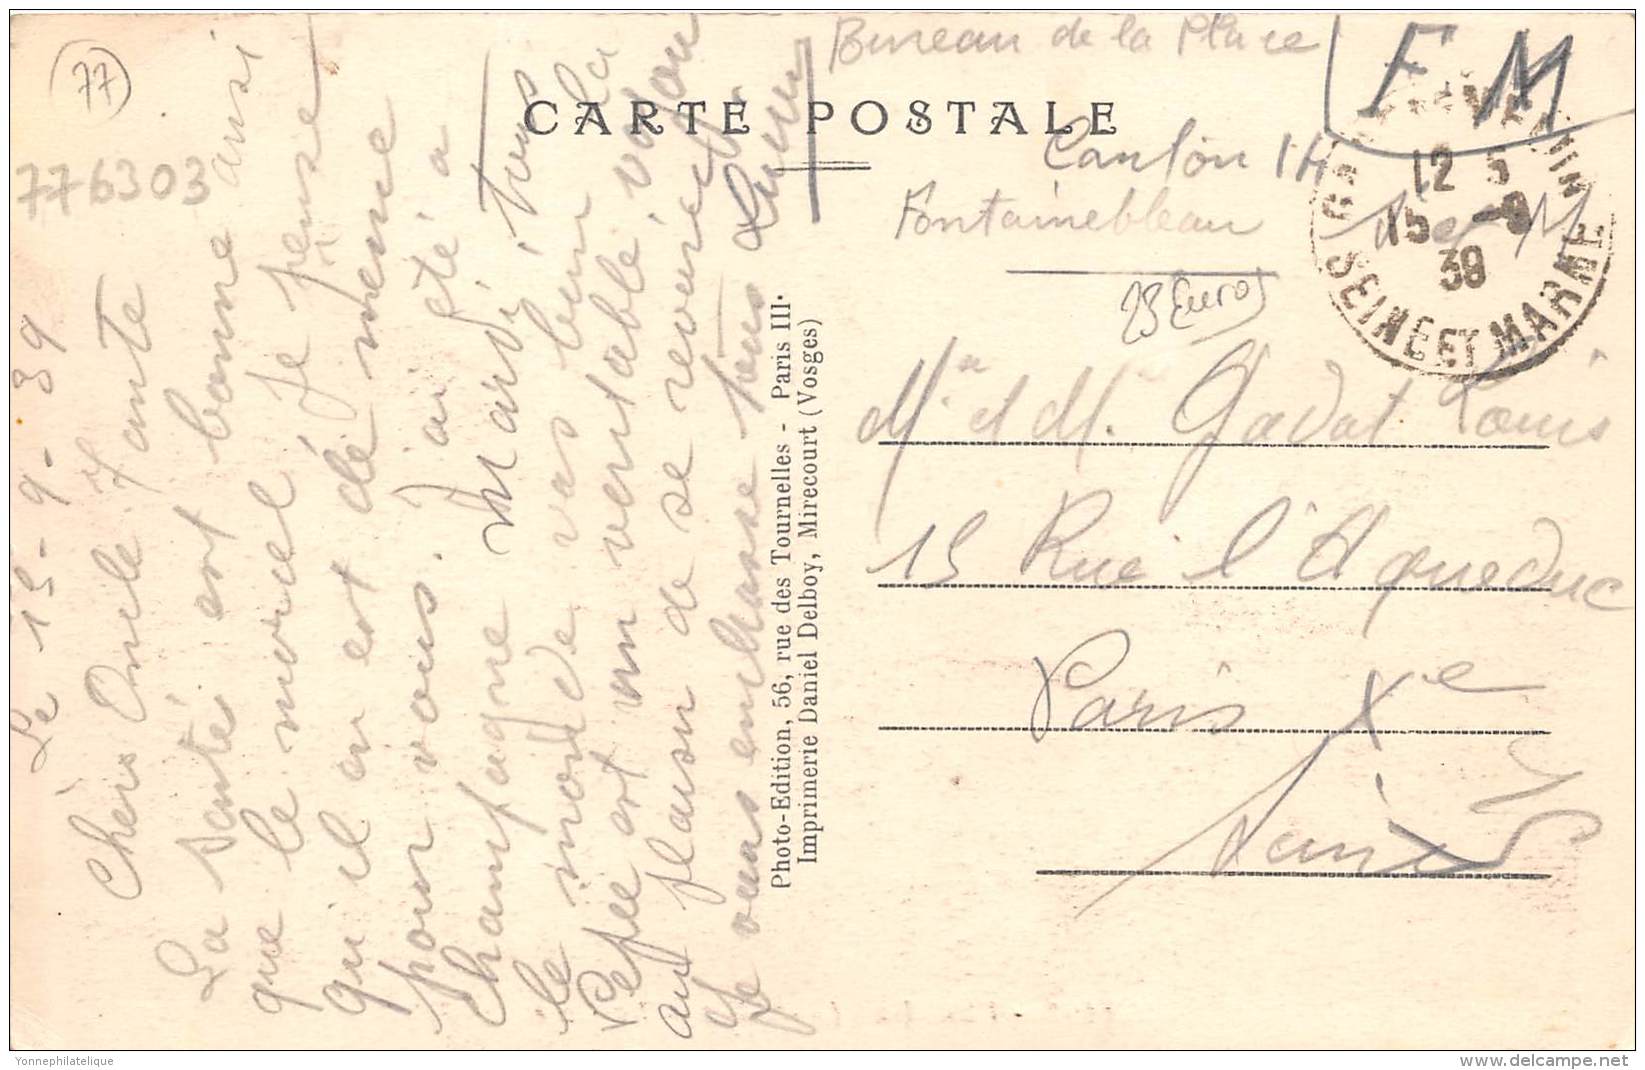 77
776303
Le 15-9-39
Chèrs Oncle Tante
La santé est bonne ainsi
que le morcel Je pense
qu'il en est de même
pour vous. J'ai été à
Champagne Mardi, tous
le monde vas bien la
Pépée est un veritable
au plaisir de se revoir
Je vous embrasse tous
CARTE POSTALE
Photo-Edition, 56, rue des Tournelles - Paris III.
Imprimerie Daniel Delboy, Mirecourt (Vosges)
Bureau de la Place
F M
Canton
Fontainebleau S et M
23 Euros
12 5
15 -9
39
SEINE ET MARNE
Mr et Me Gadat Louis
15 Rue l'Aqueduc
Paris Xe
Paris
Yonnephilatelique
delcampe.net